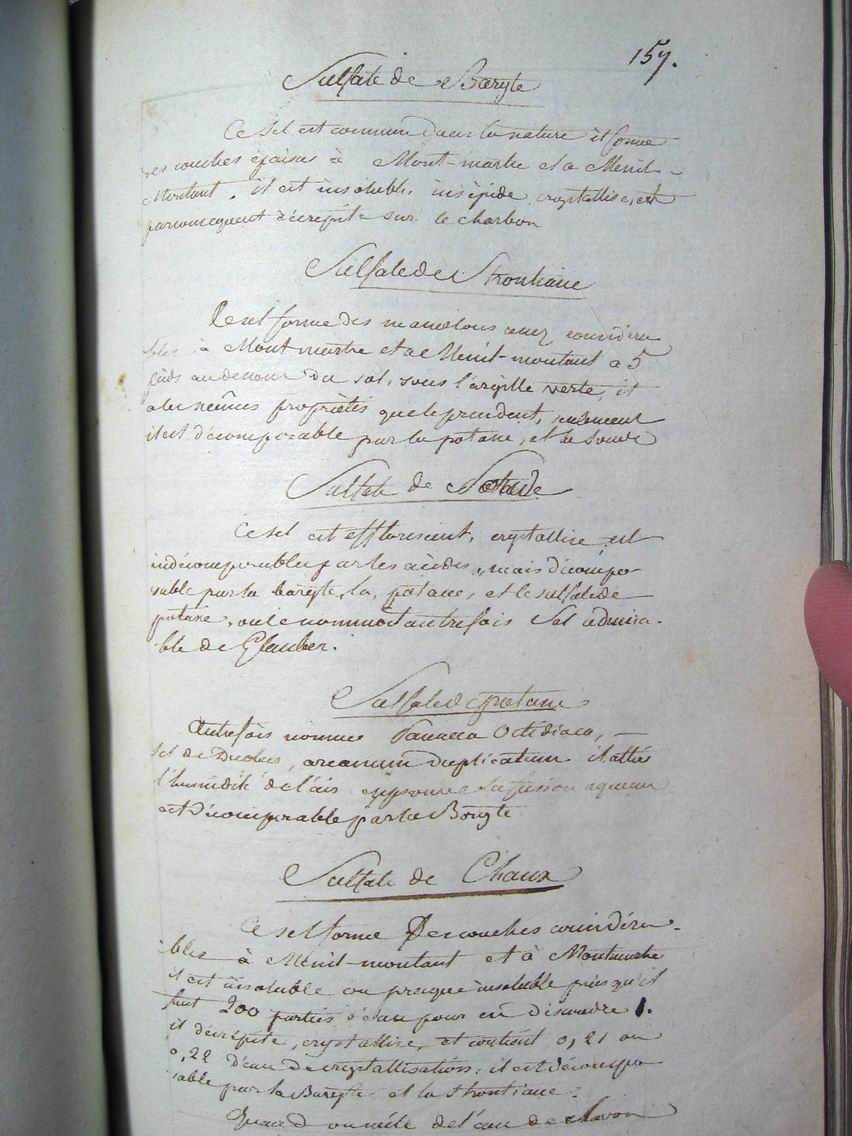 157.
Sulfate de Baryte
Ce sel est commun dans la nature et forme
des couches épaises à Mont-martre et a Menil-
Montant. il est insoluble, insipide, crystallise, et
par consequent décrépite sur le charbon
Sulfate de Strontiane
Ce sel forme des mamelons assez considéra
bles à Mont martre et a Menil-montant a 5
pieds au dessous du sol, sous l'argille verte, il
a les mêmes propriétés que le précedent, seulement
il est décomposable par la potasse, et la soude
Sulfate de Soude
Ce sel est efflorescent, crystallise est
indécomposable par les acides, mais décompo
sable par la baryte, la potasse, et le sulfate de
potasse, on le nommoit autrefois Sel admira-
ble de Glauber.
Sulfate de potasse
Autrefois nommé
Sel de Duobus, arcanum duplicatum il attire
l'humidité de l'air eprouve la fusion aqueuse
est décomposable par la Baryte
Sulfate de Chaux
Ce sel forme Des couches considéra-
bles à Menil-montant et à Montmartre
il est insoluble ou presque insoluble puisqu'il
faut 200 parties d'eau pour en dissoudre 1.
il décrépite, crystallise, et contient 0,21 ou
0,22 d'eau de crystallisation; il est décompo
sable par la Baryte et la Strontiane.
Quand on mêle de l'eau de savon